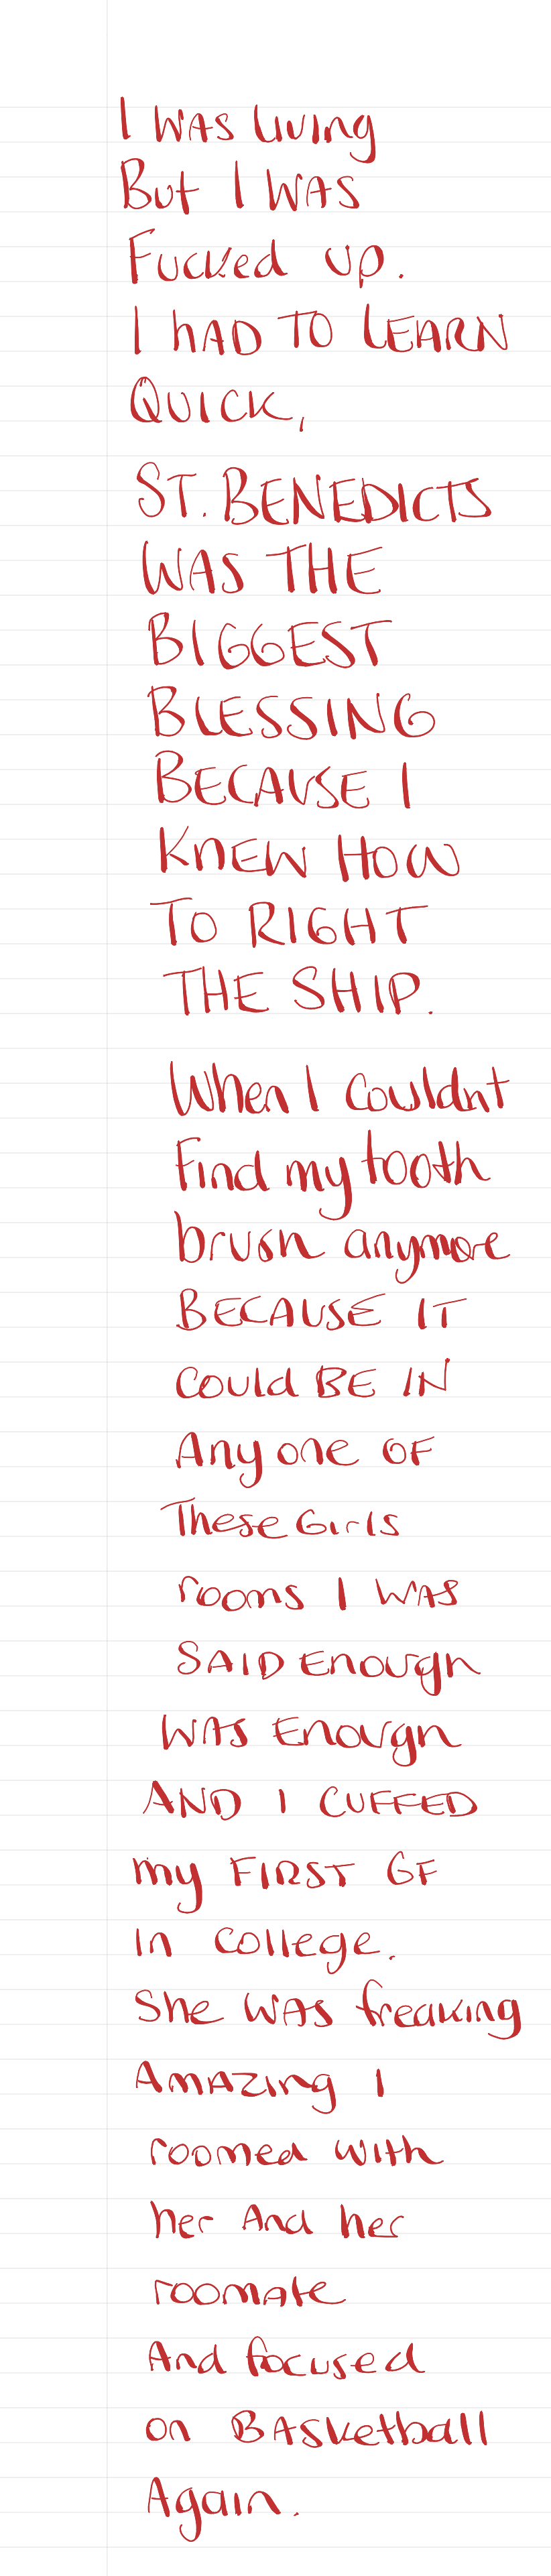 I WAS Living
But I WAS
Fucked up.
I hAD TO LEARN
QUICK,
ST. BENEDICTS
WAS THE
BIGGEST
BLESSING
BECAUSE I
KNEW HOW
TO RIGHT
THE SHIP.
When I couldnt
Find my tooth
brush anymore
BECAUSE IT
Could BE IN
Any one OF
These Girls
rooms I WAS
SAID Enough
WAS Enough
AND I CUFFED
my FIRST GF
In college.
She WAS freaking
AmAZing I
roomed with
her And her
roomAte
And focused
on BASketball
Again.